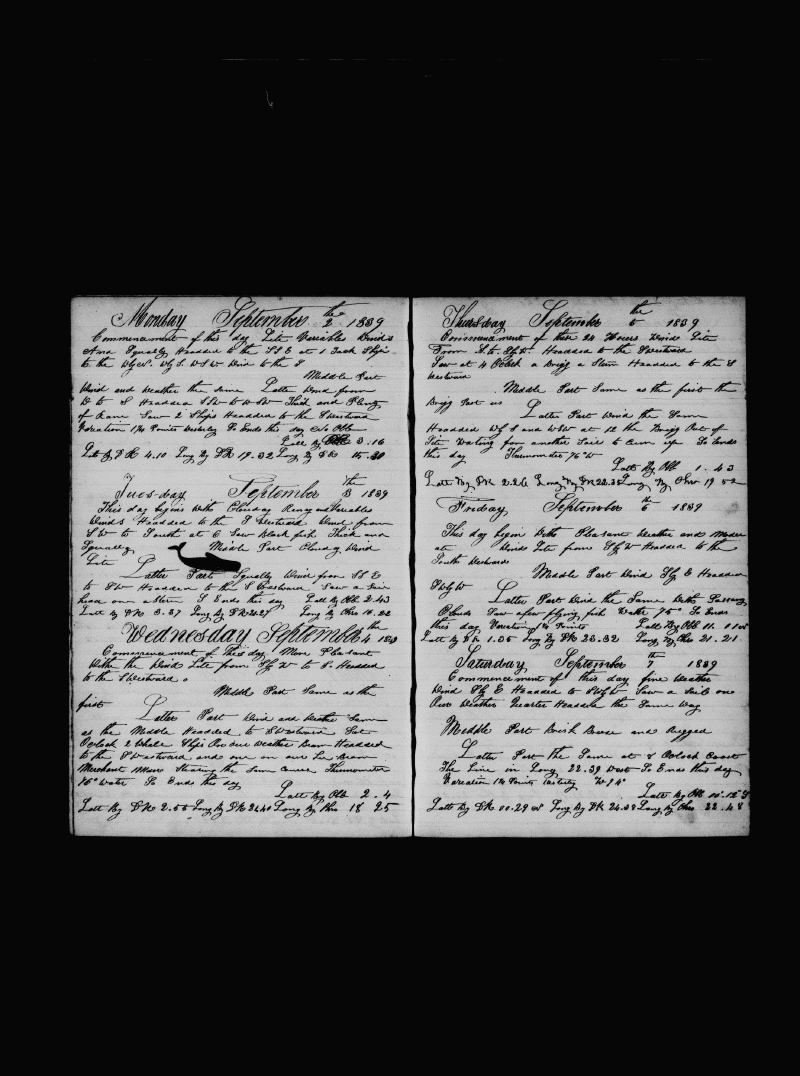 Monday September the 2 1839
Commencement of this day Lite Variables Winds
And Squally Headded to the SSE at 1 Tack Ship
to the W by S. W by S. WSW Wind to the S
Middle Part
Wind and Weather the Same Latter Wind from
W to S Headded SW to WSW Thick and Plenty
of Rain Saw 2 Ships Headded to the S Westward
Vereation 1¾ Points Westerly So Ends this day No Obb
Latt By 3.16
Latt By DR 4.10 Long By DR 19.32 Long By 15.30
Tuesday September the 3 1839
This day begins With Clouday Rangy and Variables
Winds Headded to the S Westward Wind from
SW to South at 6 Saw Black fish Thick and
Squally Midle Part Clouday Wind
Lite
Latter Part Squally Wind from SSE
to SW Headded to the S Eastward Saw a Sail
head on a Stern So Ends this day Latt By Obb 2.43
Latt By DR 3.37 Long By DR Long By Chro 16.22
Wednesday September the 4 1839
Commencement of This day More Pleasant
Wether the Wind Lite from S by W to S. Headed
to the S Westward
Middle Part Same as the
first
Latter Part Wind and Wether Same
as the Middle Headded to S Westward Sat
Oclock 2 Whale Ships Our Weather Beam Headded
to the S Westward and one on our Lee Beam
Merchant Man Stearing the Same Course Thurmometer
76° Water So Ends this day
Latt By Obb 2.4
Latt By DR 2.55 Long By DR 20.40 Long By Chro 18 25
Thursday September the 5 1839
Commencment of these 24 Hours Wind Lite
From S to S by W. Headded to the S Westward
Saw at 4 Oclock a Brigg a Stern Headded to the S
Westward
Middle Part Same as the first the
Brigg Past us
Latter Part Wind the Same
Headded W by S and WSW at 12 the Brigg Out of
Site Waiting for another Sail to Cum up So Ends
this day Thurmometer 76° W
Latt By Obb 1.43
Latt By DR 2.26 Long By DR 22.35 Long By Chro 19 52
Friday September th 6 1839
This day begins With Pleasant Weather and Moder
ate Winds Lite from S by W Headed to the
South Westward
Middle Part Wind S by E Headded
SW by W
Latter Part Wind the Same With Passing
Clouds Saw a few flying fish Water 75° So Ends
this day Vereation 1¼ Points Latt By Obb 11.
Latt By DR 1.05 Long By DR 23.32 Long By Chro 21.21
Saturday September th 7 1839
Commencement of this day fine Weather
Wind S by E Headded to SW by W Saw a Sail one
Our Weather Quarter Headded the Same Way
Middle Part Brisk Breese and Rugged
Latter Part the Same at 8 Oclock Crost
The Line in Long 22.39 West So Ends this day
Vereation 1¼ Points Easterly W 74°
Latt By Obb 00.12 S
Latt By DR 00.29 Long By DR 24.39 Long By Chro 22.48